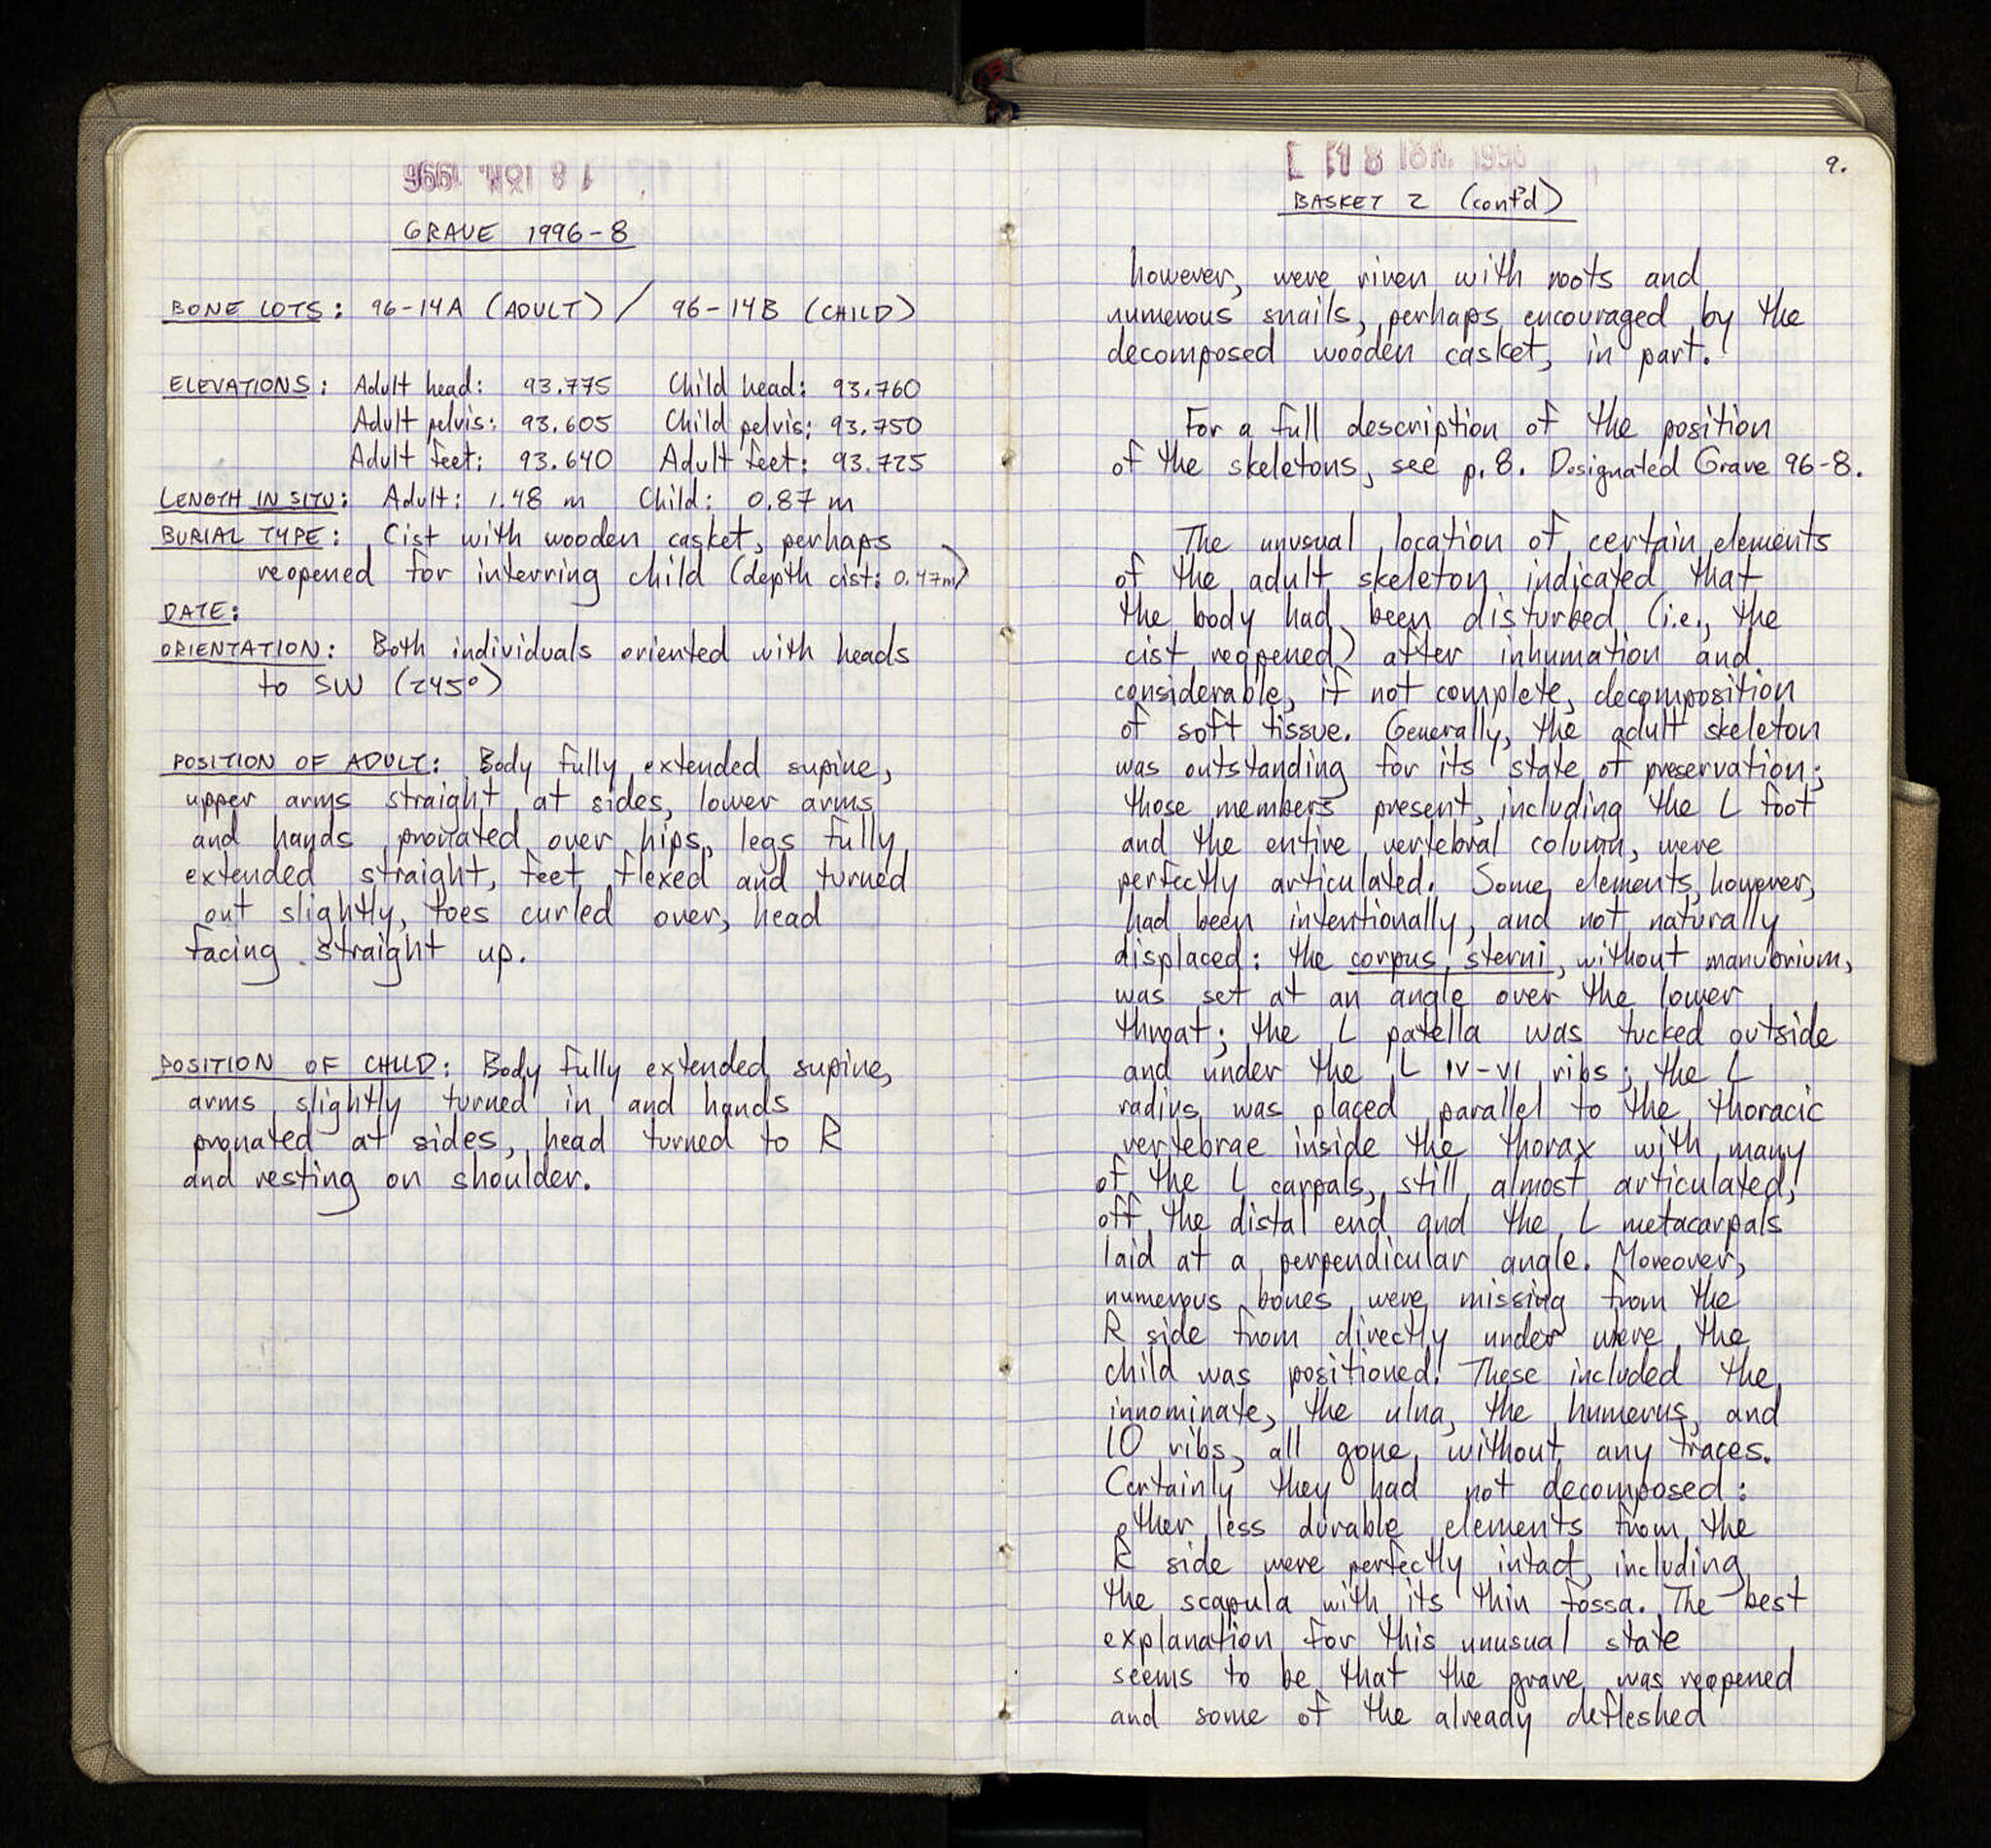 18 ION. 1996
GRAVE 1996-8
BONE LOTS: 96-14A (ADULT) / 96-14B (CHILD)
ELEVATIONS: Adult head: 93.775 Child head: 93.760
Adult pelvis: 93.605 Child pelvis: 93.750
Adult feet: 93.640 Adult feet: 93.725
LENGTH IN SITU: Adult: 1.48 m Child: 0.87 m
BURIAL TYPE: Cist with wooden casket, perhaps
reopened for interring child (depth cist: 0.47m)
DATE:
ORIENTATION: Both individuals oriented with heads
to SW (245°)
POSITION OF ADULT: Body fully extended supine,
upper arms straight at sides, lower arms
and hands pronated over hips, legs fully
extended straight, feet flexed and turned
out slightly, toes curled over, head
facing straight up.
POSITION OF CHILD: Body fully extended supine,
arms slightly turned in and hands
pronated at sides, head turned to R
and resting on shoulder.
18 ION. 1996
9.
BASKET 2 (cont'd)
however, were riven with roots and
numerous snails, perhaps encouraged by the
decomposed wooden casket, in part.
For a full description of the position
of the skeletons, see p. 8. Designated Grave 96-8.
The unusual location of certain elements
of the adult skeleton indicated that
the body had been disturbed (i.e., the
cist reopened) after inhumation and
considerable, if not complete, decomposition
of soft tissue. Generally, the adult skeleton
was outstanding for its state of preservation;
those members present, including the L foot
and the entire vertebral column, were
perfectly articulated. Some elements, however,
had been intentionally, and not naturally
displaced: the corpus sterni, without manubrium,
was set at an angle over the lower
throat; the L patella was tucked outside
and under the L IV-VI ribs; the L
radius was placed parallel to the thoracic
vertebrae inside the thorax with many
of the L carpals, still almost articulated,
off the distal end and the L metacarpals
laid at a perpendicular angle. Moreover,
numerous bones were missing from the
R side from directly under were the
child was positioned. These included the
innominate, the ulna, the humerus, and
10 ribs, all gone without any traces.
Certainly they had not decomposed:
other less durable elements from the
R side were perfectly intact, including
the scapula with its thin fossa. The best
explanation for this unusual state
seems to be that the grave was reopened
and some of the already defleshed